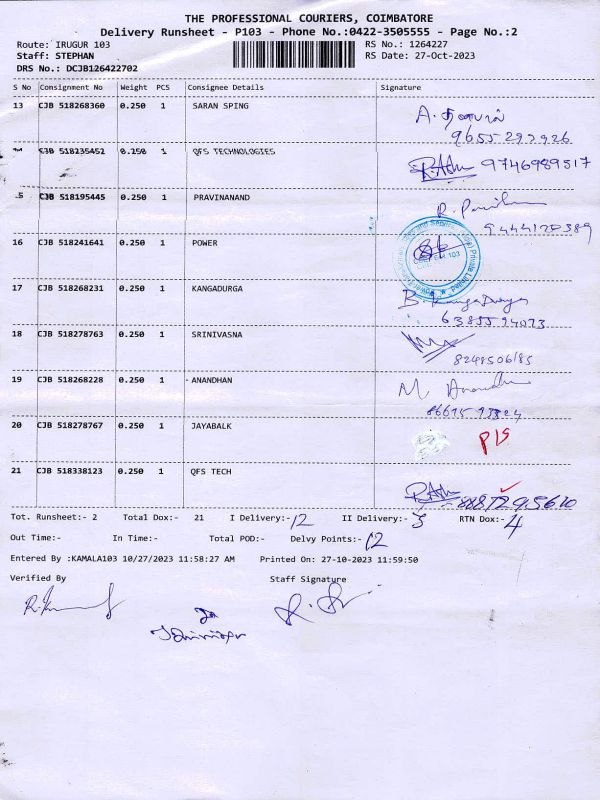 THE PROFESSIONAL COURIERS, COIMBATORE
Delivery Runsheet - P103 - Phone No.:0422-3505555 - Page No.:2
Route: IRUGUR 103 RS No.: 1264227
Staff: STEPHAN RS Date: 27-Oct-2023
DRS No.: DCJB126422702
S No Consignment No Weight PCS Consignee Details Signature
13 CJB 518268360 0.250 1 SARAN SPING
A.
9655 292926
CJB 518235452 0.250 1 QFS TECHNOLOGIES
9746989517
CJB 518195445 0.250 1 PRAVINANAND
9444120389
16 CJB 518241641 0.250 1 POWER
17 CJB 518268231 0.250 1 KANGADURGA
B. Kanga Durga
18 CJB 518278763 0.250 1 SRINIVASNA
8248506185
19 CJB 518268228 0.250 1 ANANDHAN
M
20 CJB 518278767 0.250 1 JAYABALK
P/S
21 CJB 518338123 0.250 1 QFS TECH
Tot. Runsheet:- 2 Total Dox:- 21 I Delivery:- 12 II Delivery:- 5 RTN Dox:- 4
Out Time:- In Time:- Total POD:- Delvy Points:- 12
Entered By :KAMALA103 10/27/2023 11:58:27 AM Printed On: 27-10-2023 11:59:50
Verified By Staff Signature